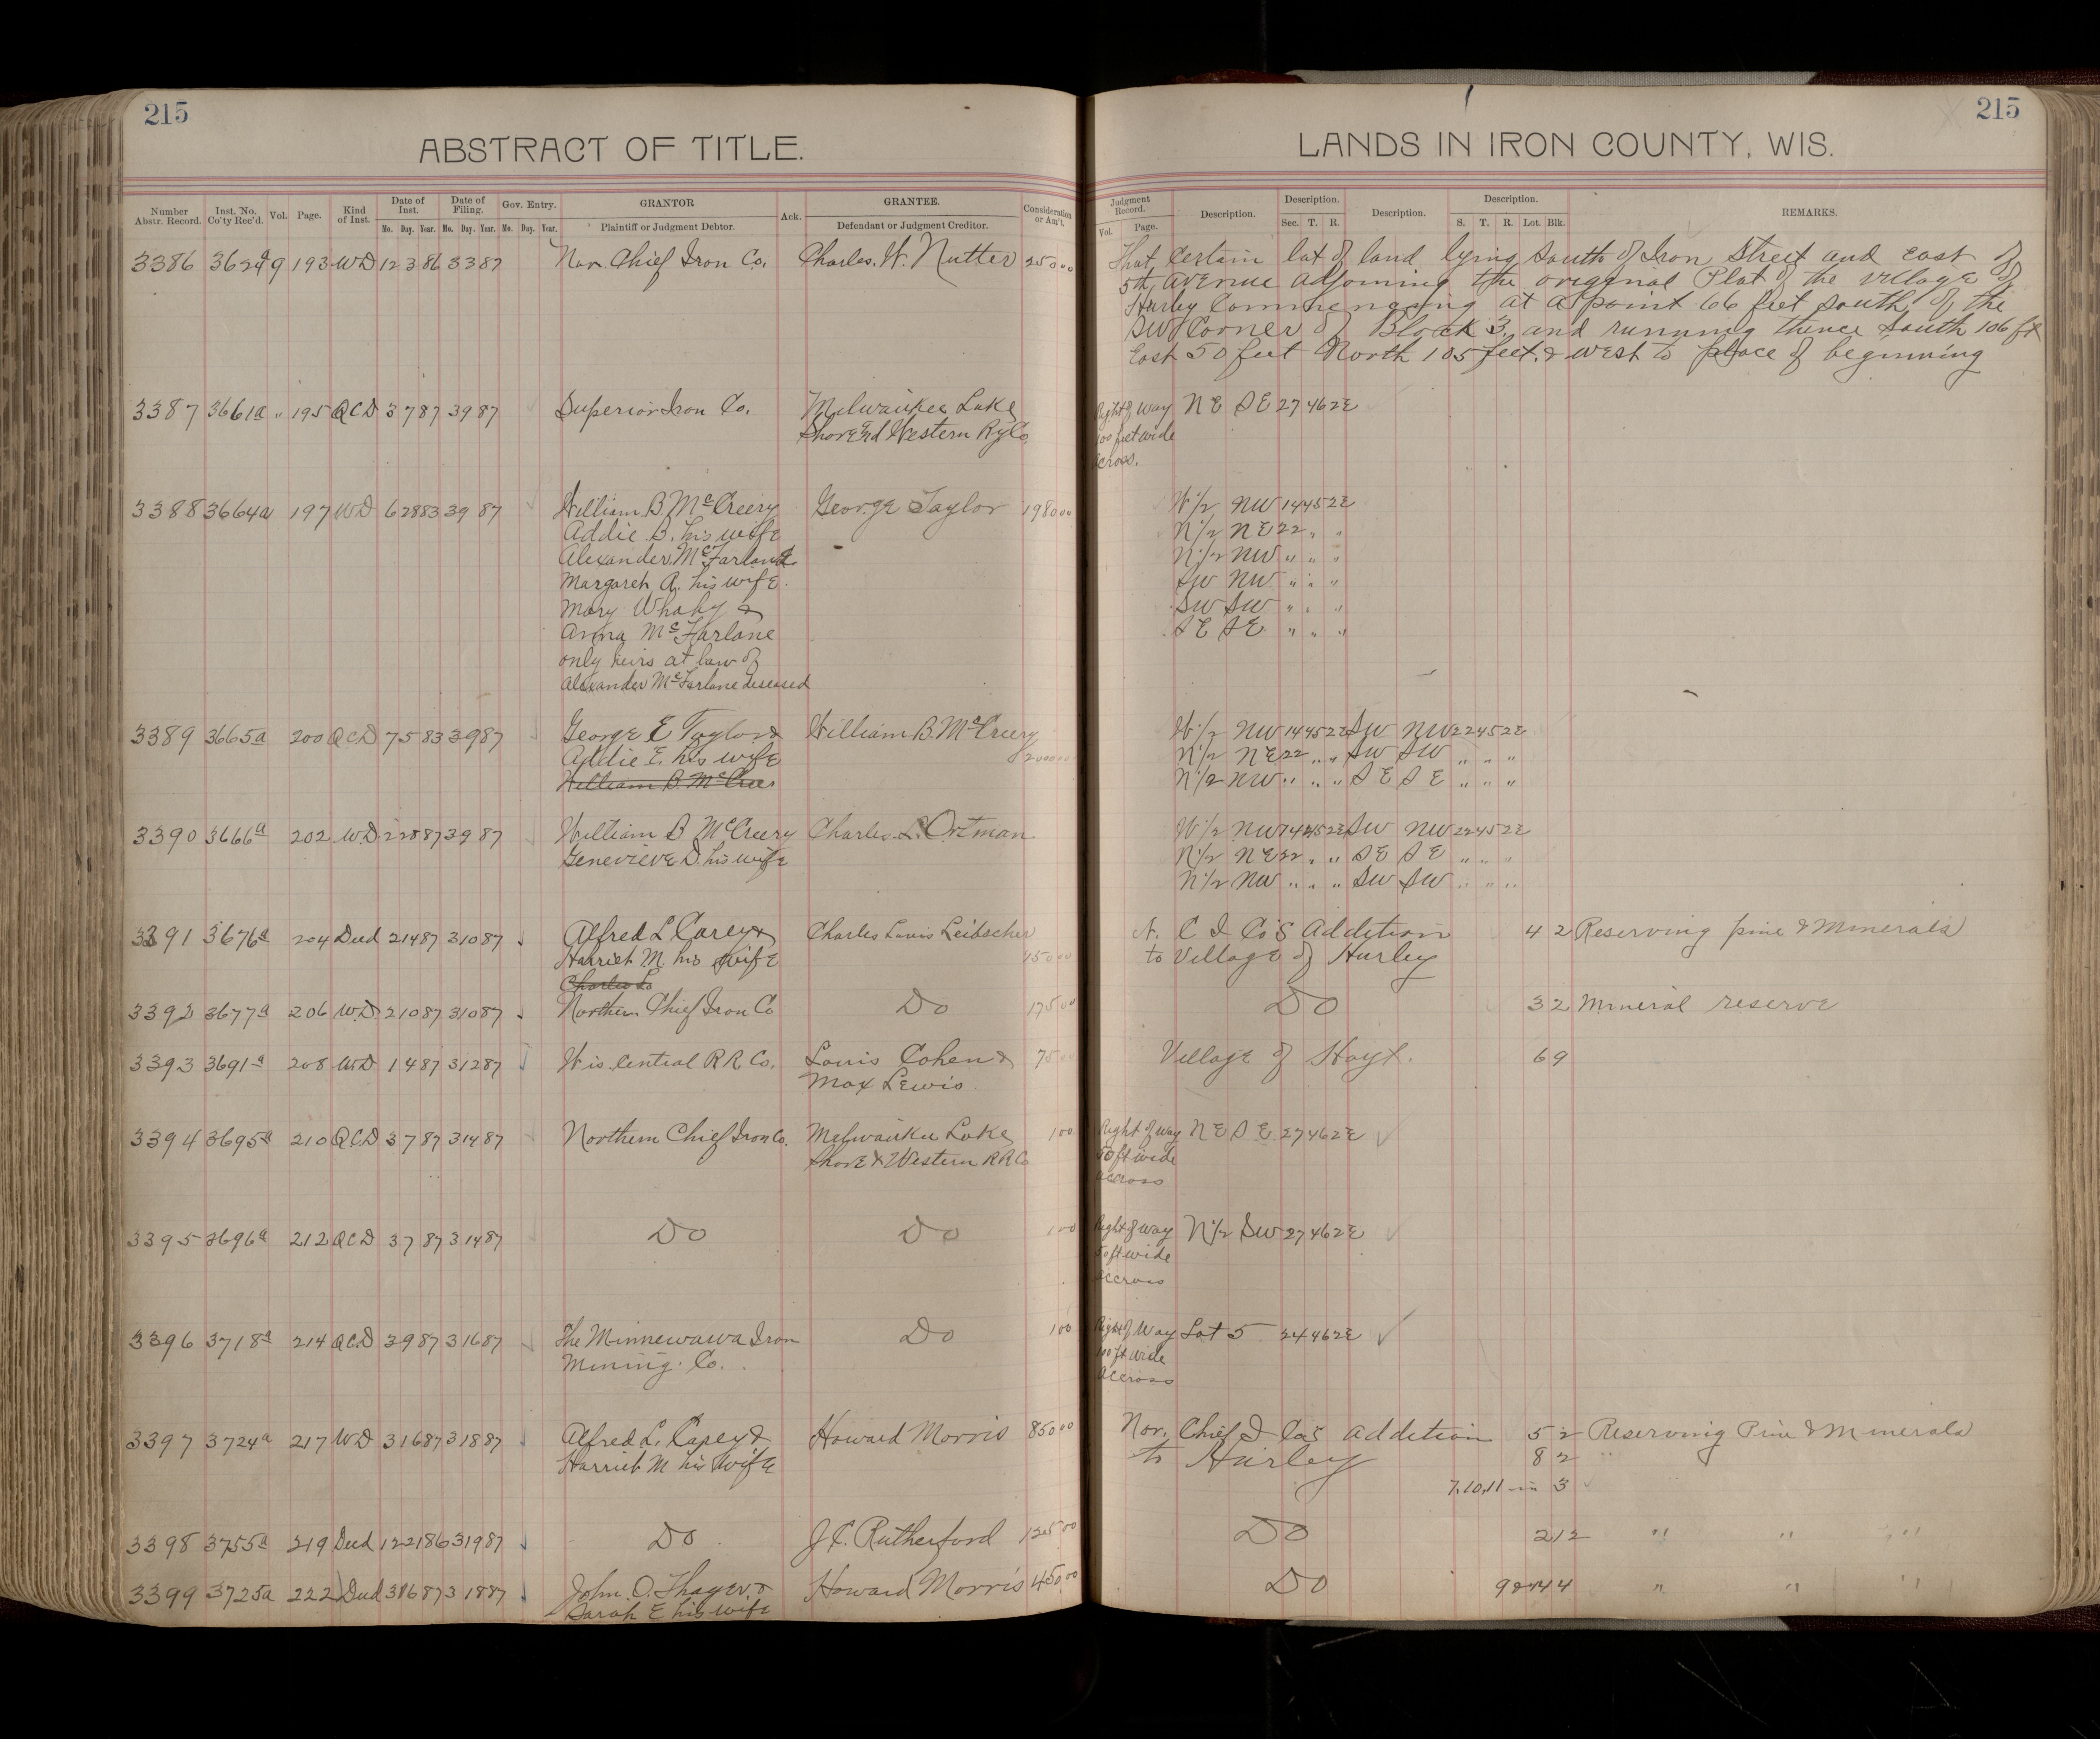 215
ABSTRACT OF TITLE.
Number Abstr. Record. Inst. No. Co'ty Rec'd. Vol. Page. Kind of Inst. Date of Inst. Mo. Day. Year. Date of Filing. Mo. Day. Year. Gov. Entry. Mo. Day. Year. GRANTOR Plaintiff or Judgment Debtor. Ack. GRANTEE. Defendant or Judgment Creditor. Consideration or Am't.
3386 3624a 9 193 WD 12 3 86 3 3 87 Nor. Chief Iron Co. Charles. W. Nutter 250 00
3387 3661a " 195 QCD 3 7 87 3 9 87 Superior Iron Co. Milwaukee Lake
Shore and Western Ry Co
3388 3664a 197 WD 6 28 83 3 9 87 William B McCreery George Taylor 1980 00
Addie B. his wife
Alexander McFarland
Margaret A. his wife.
Mary Whaby &
Anna McFarlane
only heirs at law of
Alexander McFarlane deseased
3389 3665a 200 QCD 7 5 83 3 9 87 George E Taylor & William B. McCreery
Addie E. his wife 2000 00
William B. McCree
3390 3666a 202 W.D 2 28 87 3 9 87 William B McCreery Charles L. Ortman
Genevieve D. his wife
3391 3676a 204 Deed 2 14 87 3 10 87 Alfred L. Carey & Charles Louis Leibscher
Harriet M. his wife 150 00
Charles L
3392 3677a 206 W.D. 2 10 87 3 10 87 Northern Chief Iron Co Do 175 00
3393 3691a 208 WD 1 4 87 3 12 87 Wis. Central R R. Co. Louis Cohen & 75 00
Max Lewis
3394 3695a 210 QCD 3 7 87 3 14 87 Northern Chief Iron Co. Milwaukee Lake 1 00
Shore & Western R R Co
3395 3696a 212 QCD 3 7 87 3 14 87 Do Do 1 00
3396 3718a 214 QC.D 3 9 87 3 16 87 The Minnewawa Iron Do 1 00
Mining. Co.
3397 3724a 217 WD 3 16 87 3 18 87 Alfred L. Carey & Howard Morris 850 00
Harriet M his wife
3398 3755a 219 Deed 12 21 86 3 19 87 Do J. C. Rutherford 125 00
3399 3725a 222 Deed 3 16 87 3 18 87 John. O. Thayer & Howard Morris 450 00
Sarah E his wife
215
LANDS IN IRON COUNTY, WIS.
Judgment Record. Vol. Page. Description. Description. Sec. T. R. Description. Description. S. T. R. Lot. Blk. REMARKS.
That certain lot of land lying South of Iron Street and East of
5th avenue adjoining the origenal Plat of the village of
Hurley Commencing at a point 66 feet south of the
SW Corner of Block 3. and running thence South 106 ft
East 50 feet North 105 feet. & west to place of beginning
Right of Way N E S E 27 46 2 E
100 feet wide
across.
W 1/2 NW 14 45 2 E
N 1/2 N E 22 " "
N 1/2 NW " " "
SW NW " " "
SW SW " " "
S E S E " " "
W 1/2 NW 14 45 2 E SW NW 22 45 2 E
N 1/2 N E 22 " " SW SW " " "
N 1/2 NW " " " S E S E " " "
W 1/2 NW 14 45 2 E SW NW 22 45 2 E
N 1/2 N E 22 " " S E S E " " "
N 1/2 NW " " " SW SW " " "
N. C I Co's Addition 4 2 Reserving pine & Minerals
to Village of Hurley
Do 3 2 Mineral reserve
Village of Hoyt. 6 9
Right of way N E S E. 27 46 2 E
50 ft wide
accross
Right of way N 1/2 SW 27 46 2 E
50 ft wide
accross
Right of Way Lot 5 24 46 2 E
100 ft wide
accross
Nor. Chief I Co's addition 5 2 Reserving Pine & Minerals
to Hurley 8 2
7.10.11 in 3
Do 2 12 " " "
Do " " "